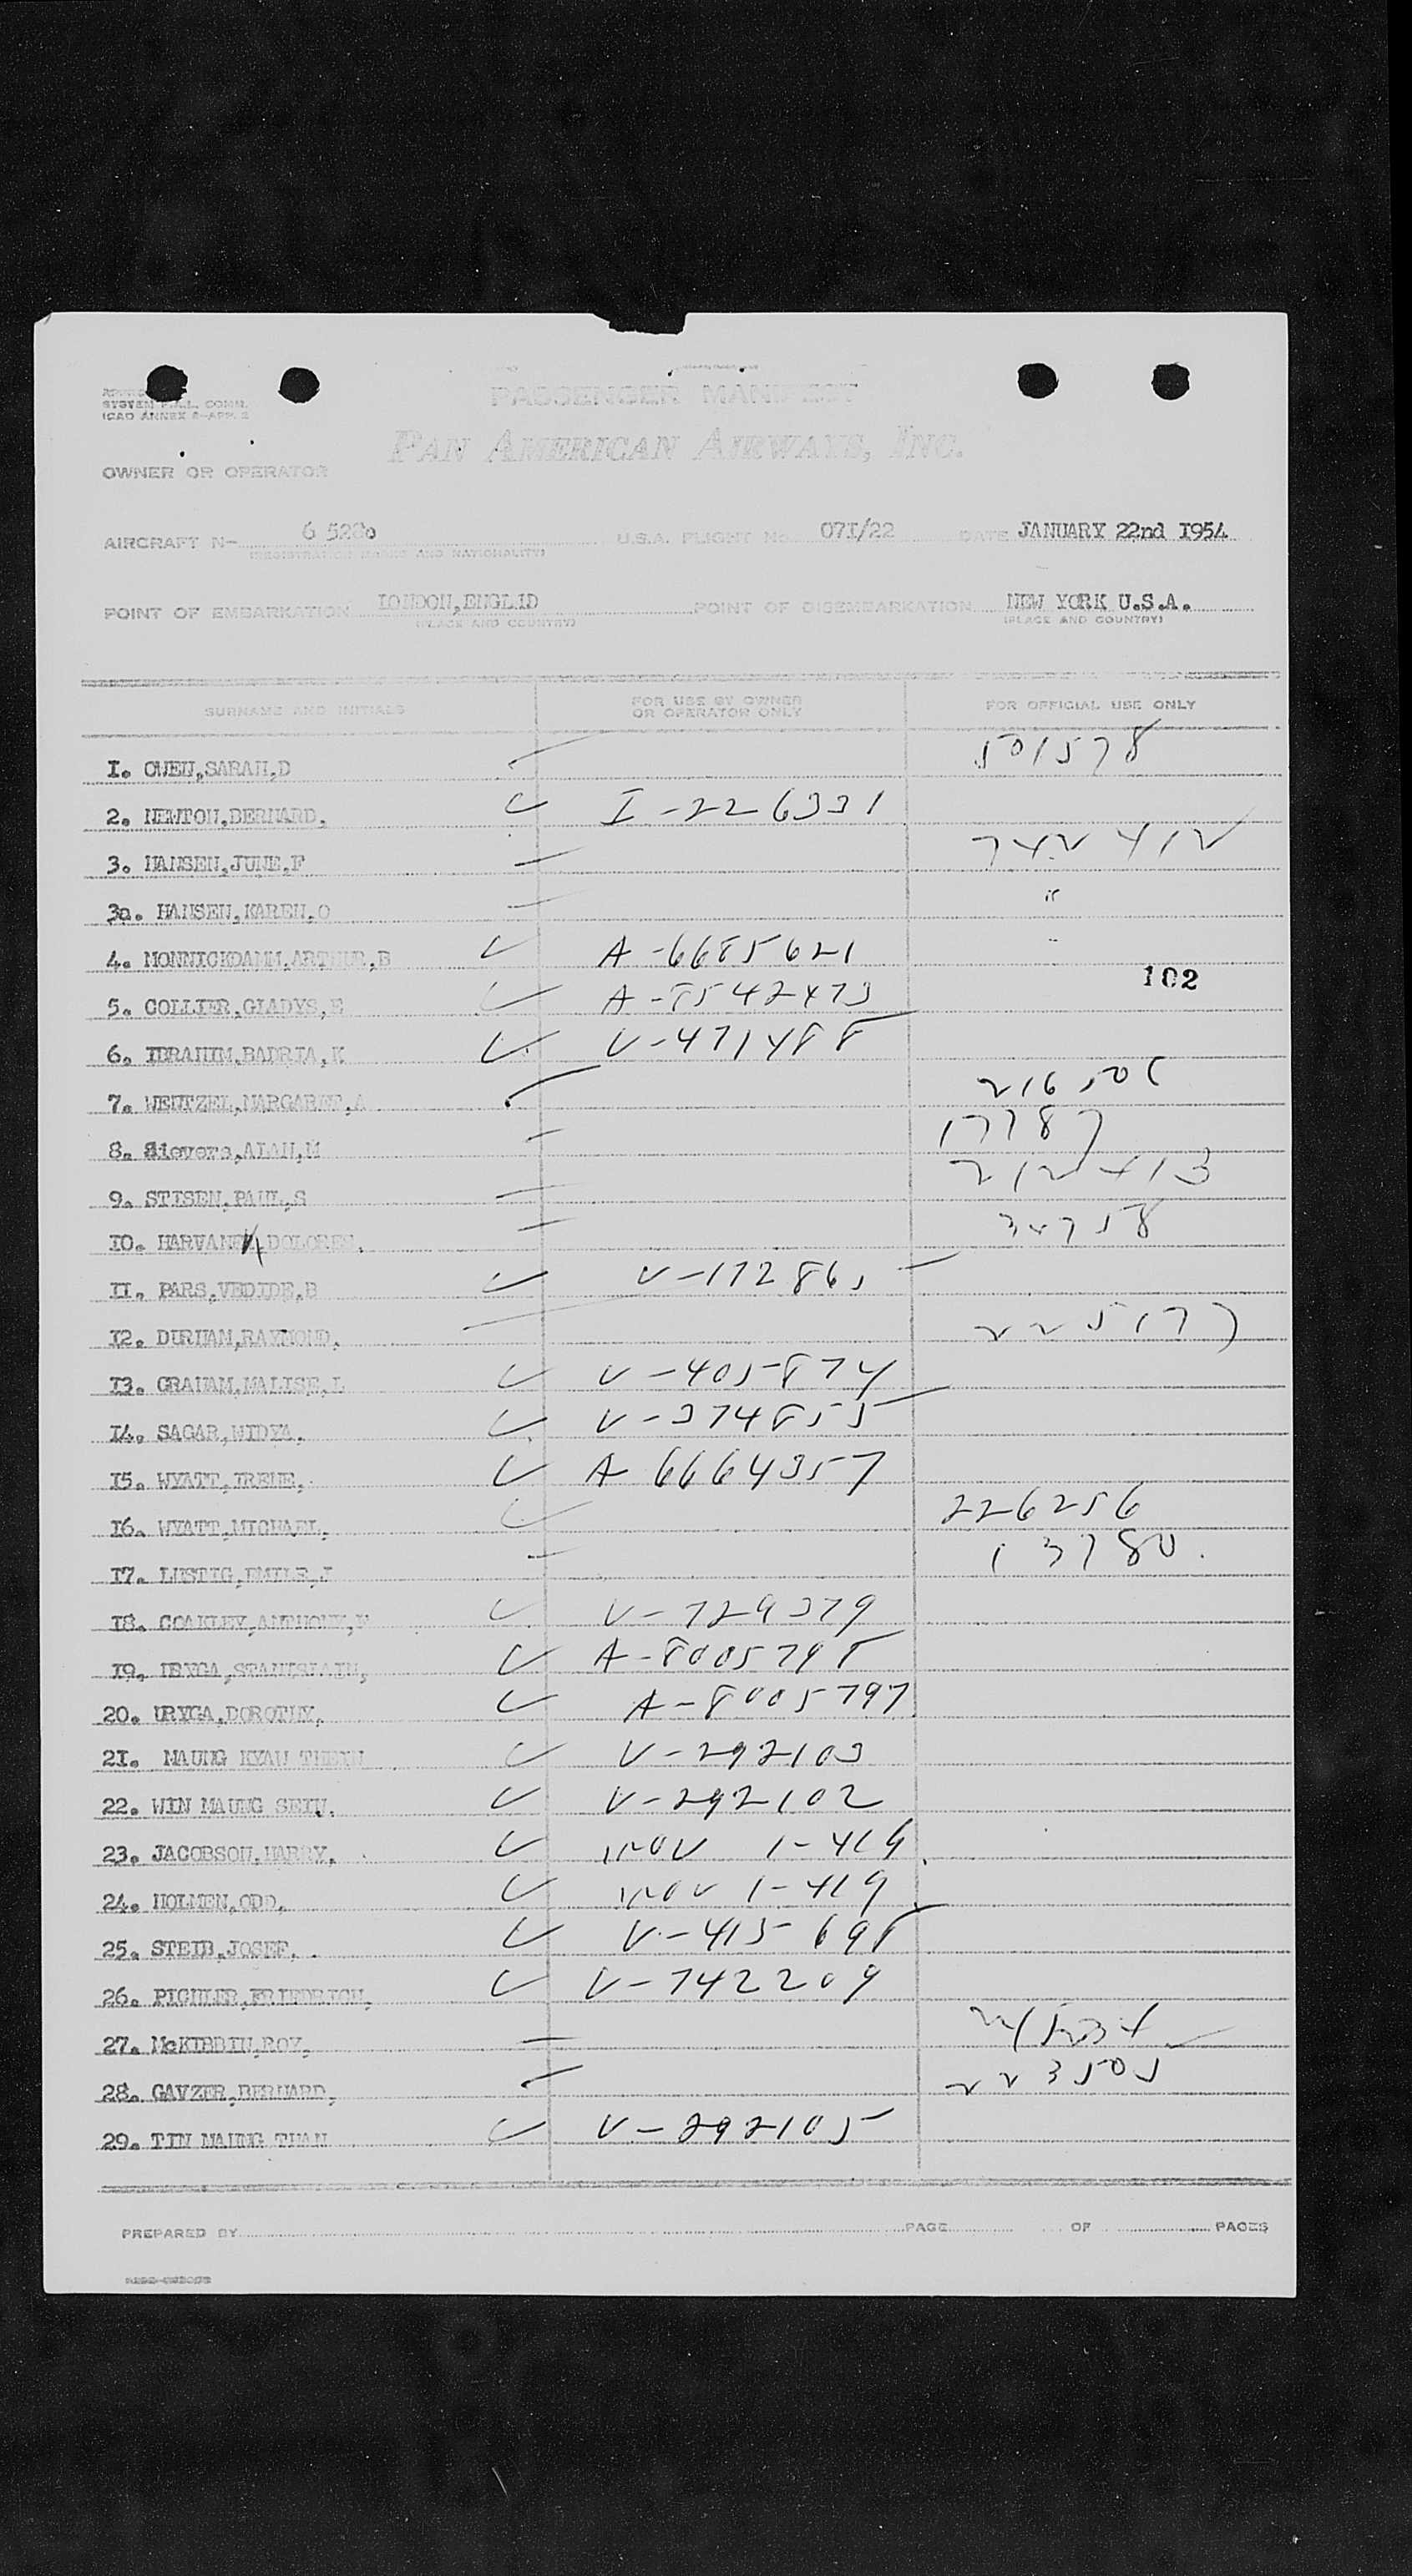 PASSENGER MANIFEST
SYSTEM P.A.L. COMN.
(CAO ANNEX 9-APP. 2
PAN AMERICAN AIRWAYS, INC.
OWNER OR OPERATOR
AIRCRAFT N- 6 5280 U.S.A. FLIGHT No. 071/22 DATE JANUARY 22nd 1954
(REGISTRATION MARKS AND NATIONALITY)
POINT OF EMBARKATION LONDON,ENGLID POINT OF DISEMBARKATION NEW YORK U.S.A.
(PLACE AND COUNTRY) (PLACE AND COUNTRY)
SURNAME AND INITIALS FOR USE BY OWNER OR OPERATOR ONLY FOR OFFICIAL USE ONLY
1. OWEN,SARAH,D 501578
2. NEWTON,BERNARD, I-226331
3. HANSEN,JUNE,F 742412
3a. HANSEN,KAREN,O "
4. MONNICKDAMM,ARTHUR,B A-6685621
102
5. COLLIER,GLADYS,E A-8542473
6. IBRAHIM,BADRIA,K V-471488
7. WENTZEL,MARGARET,A 216506
8. Sievers,ALAN,M 17787
9. STISEN,PAUL,S 212413
10. HARVANEK,DOLORES, 34758
11. PARS,VEDIDE,B V-172865
12. DURHAM,RAYMOND, 225177
13. GRAHAM,MALISE,L V-405874
14. SAGAR,VIDYA, V-374855
15. WYATT,IRENE, A 6664357
16. WYATT,MICHAEL, 226256
17. LUSTIG,EMILE,J 13780.
18. COAKLEY,ANTHONY, V-729379
19. URYGA,STANISLAW, A-8005798
20. URYGA,DOROTHY, A-8005797
21. MAUNG KYAW THEIN V-292103
22. WIN MAUNG SEIN. V-292102
23. JACOBSON,HARRY, 1-419
24. HOLMEN,ODD, 1-419
25. STEIB,JOSEF, V-415698
26. PICHLER,FRIEDRICH, V-742209
27. McKIBBIN,ROY,
28. GAVZER,BERNARD, 223505
29. TIN MAUNG THAN V-292105
PREPARED BY PAGE OF PAGES